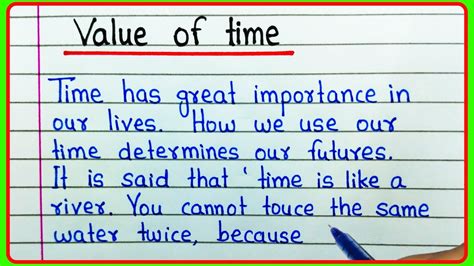 Value of time
Time has great importance in
our lives. How we use our
time determines our futures.
It is said that ' time is like a
river. You cannot touce the same
water twice, because